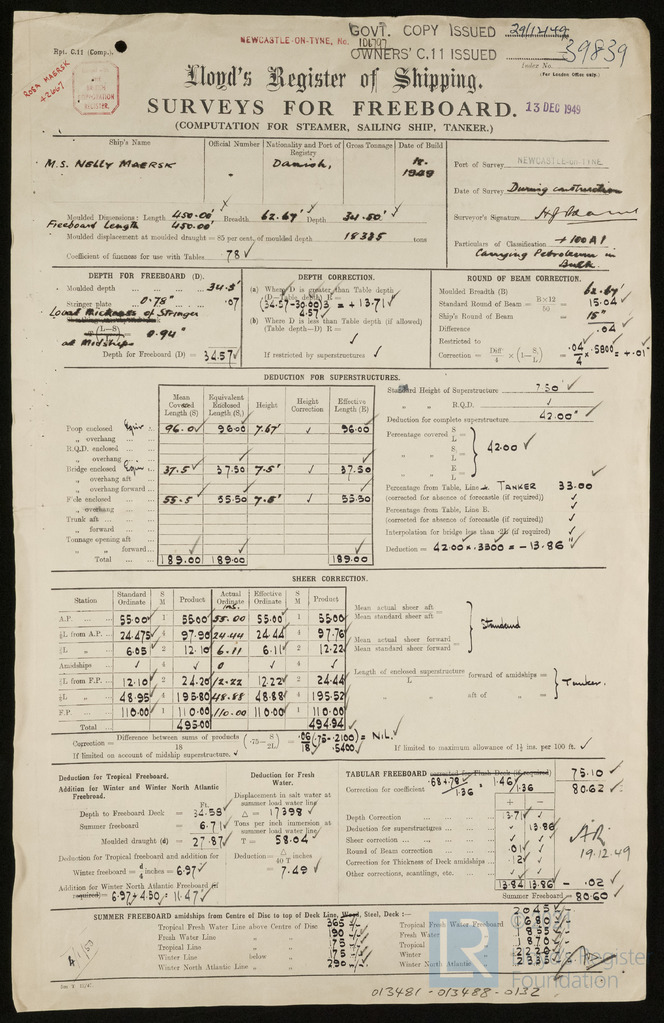 GOVT. COPY ISSUED 29/12/49
NEWCASTLE-ON-TYNE, No. 101797
OWNERS' C.11 ISSUED
Rpt. C.11 (Comp.)
39839
Index No.
(For London Office only.)
ROSA MAERSK
42667
BRITISH
CORPORATION
REGISTER.
Lloyd's Register of Shipping.
SURVEYS FOR FREEBOARD.
13 DEC 1949
(COMPUTATION FOR STEAMER, SAILING SHIP, TANKER.)
Ship's Name
Official Number
Nationality and Port of Registry
Gross Tonnage
Date of Build
M.S. NELLY MAERSK
-
Danish,
1949
Port of Survey NEWCASTLE-ON-TYNE
Date of Survey During construction
Surveyor's Signature
Particulars of Classification +100 A1
Carrying Petroleum in Bulk
Moulded Dimensions: Length 450.00' Breadth 62.67' Depth 34.50'
Freeboard Length 450.00'
Moulded displacement at moulded draught = 85 per cent. of moulded depth 18335 tons
Coefficient of fineness for use with Tables .78
DEPTH FOR FREEBOARD (D).
Moulded depth 34.5'
Stringer plate 0.78" .07
Local thickness of Stringer
at Midships 0.94"
Depth for Freeboard (D) = 34.57
DEPTH CORRECTION.
(a) Where D is greater than Table depth
(D—Table depth) R =
(34.57-30.00)3 = +13.71
4.57
(b) Where D is less than Table depth (if allowed)
(Table depth—D) R =
If restricted by superstructures
ROUND OF BEAM CORRECTION.
Moulded Breadth (B) 62.67'
Standard Round of Beam = B×12/50 = 15.04
Ship's Round of Beam = 15"
Difference .04
Restricted to
Correction = Diff/4 × (1-S/L) = .04/4 × .5800 = +.01"
DEDUCTION FOR SUPERSTRUCTURES.
Mean Covered Length (S)
Equivalent Enclosed Length (S₁)
Height
Height Correction
Effective Length (E)
Poop enclosed Equiv 96.0 96.00 7.67' 96.00
„ overhang
R.Q.D. enclosed
„ overhang
Bridge enclosed Equiv 37.5 37.50 7.5' 37.50
„ overhang aft
„ overhang forward
F'cle enclosed 55.5 55.50 7.5' 55.50
„ overhang
Trunk aft
„ forward
Tonnage opening aft
„ „ forward
Total 189.00 189.00 189.00
Standard Height of Superstructure 7.50'
„ „ R.Q.D.
Deduction for complete superstructure 42.00"
Percentage covered S/L =
„ „ S₁/L = 42.00
„ „ E/L =
Percentage from Table, Line TANKER 33.00
(corrected for absence of forecastle (if required))
Percentage from Table, Line B.
(corrected for absence of forecastle (if required))
Interpolation for bridge less than ·2L (if required)
Deduction = 42.00 × .3300 = -13.86"
SHEER CORRECTION.
Station
Standard Ordinate
S M
Product
Actual Ordinate
Effective Ordinate
S M
Product
A.P. 55.00 1 55.00 55.00 55.00 1 55.00
⅙L from A.P. 24.475 4 97.90 24.44 24.44 4 97.76
⅓L „ 6.05 2 12.10 6.11 6.11 2 12.22
Amidships 4 0 4
⅓L from F.P. 12.10 2 24.20 12.22 12.22 2 24.44
⅙L „ 48.95 4 195.80 48.88 48.88 4 195.52
F.P. 110.00 1 110.00 110.00 110.00 1 110.00
Total 495.00 494.94
Mean actual sheer aft
Mean standard sheer aft =
Mean actual sheer forward
Mean standard sheer forward =
Standard
Length of enclosed superstructure forward of amidships =
L
„ „ aft of „ =
Tanker.
Correction = Difference between sums of products/18 (·75-S/2L) = .06/18 (.75-.2100) = NIL.
.5400
If limited on account of midship superstructure.
If limited to maximum allowance of 1½ ins. per 100 ft.
Deduction for Tropical Freeboard.
Addition for Winter and Winter North Atlantic Freeboard.
Ft.
Depth to Freeboard Deck = 34.58
Summer freeboard = 6.71
Moulded draught (d) = 27.87
Deduction for Tropical freeboard and addition for
Winter freeboard = d/4 inches = 6.97
Addition for Winter North Atlantic Freeboard (if required) = 6.97+4.50 = 11.47
Deduction for Fresh Water.
Displacement in salt water at summer load water line
Δ = 17398
Tons per inch immersion at summer load water line
T = 58.04
Deduction = Δ/40 T inches
= 7.49
TABULAR FREEBOARD corrected for Flush Deck (if required) 75.10
Correction for coefficient .68+.78/1.36 = 1.46/1.36 80.62
+ -
Depth Correction 13.71
Deduction for superstructures 13.86
Sheer correction
Round of Beam correction .01
Correction for Thickness of Deck amidships .12
Other corrections, scantlings, etc.
13.84 13.86 - .02
Summer Freeboard = 80.60
19.12.49
SUMMER FREEBOARD amidships from Centre of Disc to top of Deck Line, Wood, Steel, Deck :— 2045
Tropical Fresh Water Line above Centre of Disc 365
Fresh Water Line „ „ 190
Tropical Line „ „ 175
Winter Line below „ 175
Winter North Atlantic Line „ „ 290
Tropical Fresh Water Freeboard 1680
Fresh Water „ 1855
Tropical „ 1870
Winter „ 2220
Winter North Atlantic „ 2335
LR
Lloyd's Register
Foundation
013481-013488-0132